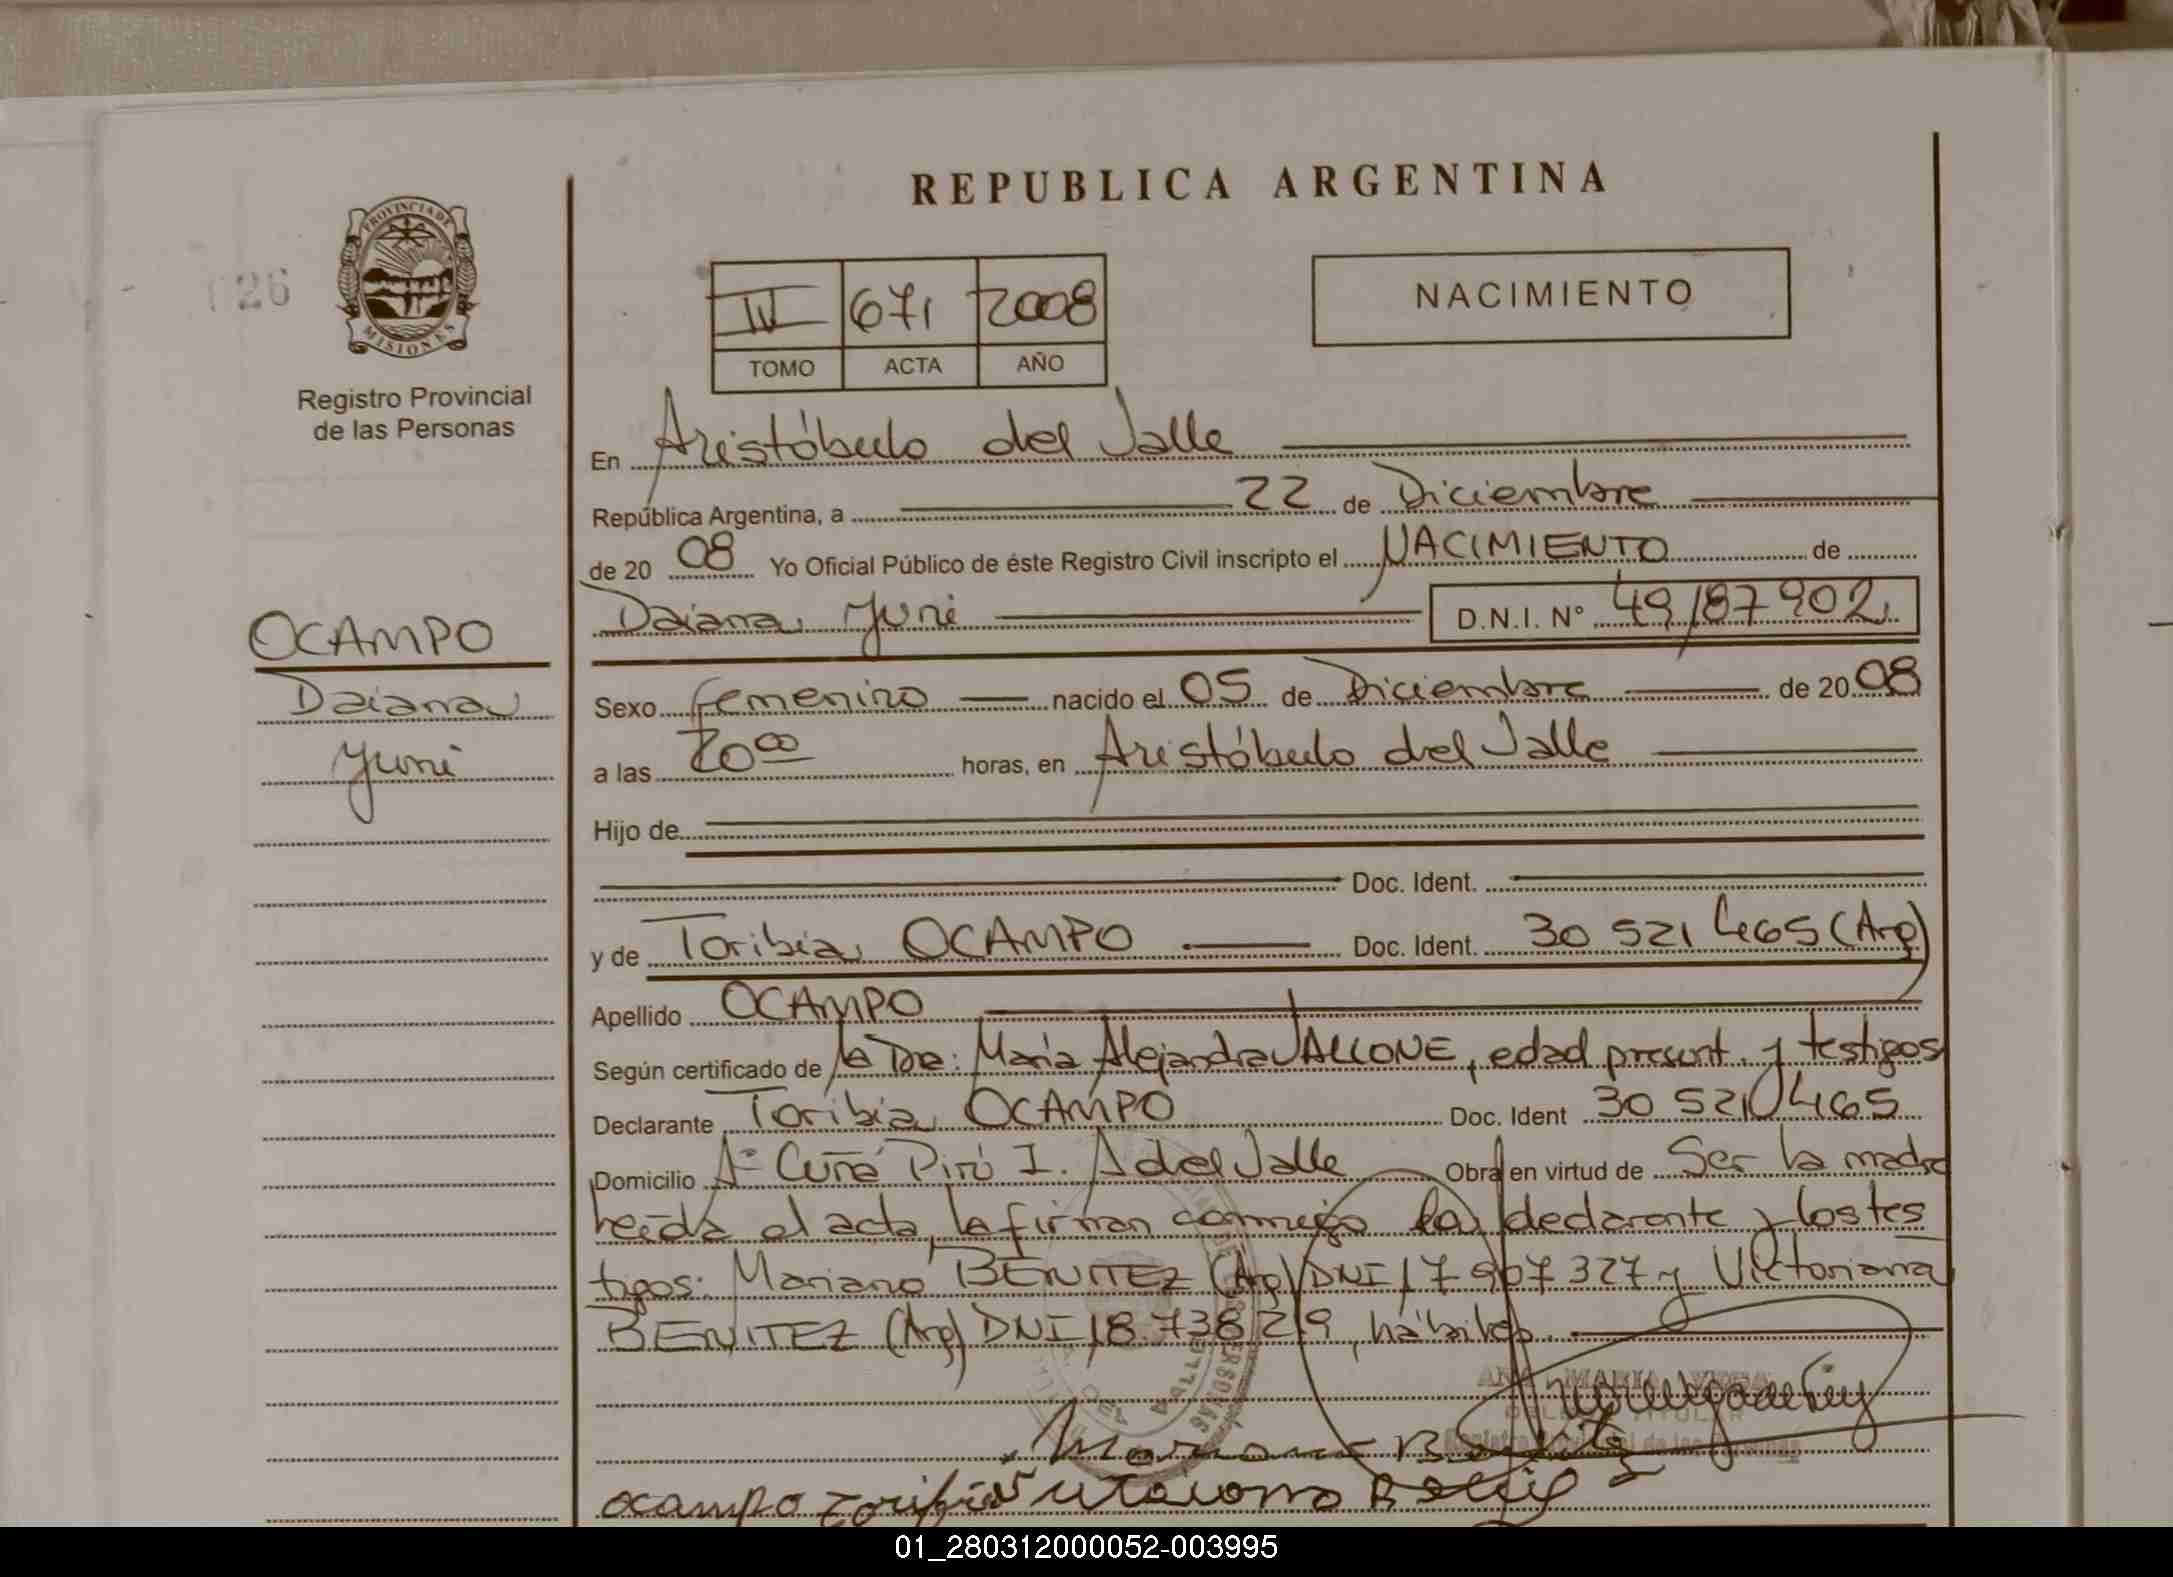 REPUBLICA ARGENTINA
26
PROVINCIA DE
MISIONES
Registro Provincial
de las Personas
IV 671 2008
TOMO ACTA AÑO
NACIMIENTO
En Aristóbulo del Valle
República Argentina, a 22 de Diciembre
de 20 08 Yo Oficial Público de éste Registro Civil inscripto el NACIMIENTO de
Daiana Yuni D.N.I. Nº 49187902
OCAMPO
Daiana
Yuni
Sexo femenino nacido el 05 de Diciembre de 20 08
a las 20 00 horas, en Aristóbulo del Valle
Hijo de
Doc. Ident.
y de Toribia OCAMPO Doc. Ident. 30 521 465 (Arg)
Apellido OCAMPO
Según certificado de la Dra: María Alejandra VALLONE, edad present. y testigos
Declarante Toribia OCAMPO Doc. Ident 30 521 465
Domicilio Aª Cuñá Pirú I. A del Valle Obra en virtud de Ser la madre
leída el acta, la firman conmigo la declarante y los tes
tigos: Mariano BENITEZ (Arg) DNI 17 907 327 y Victoriana
BENITEZ (Arg) DNI 18 738 219, hábiles.
ANA MARIA
TITULAR
Mariano Benitez
ocampo toribia
01_280312000052-003995